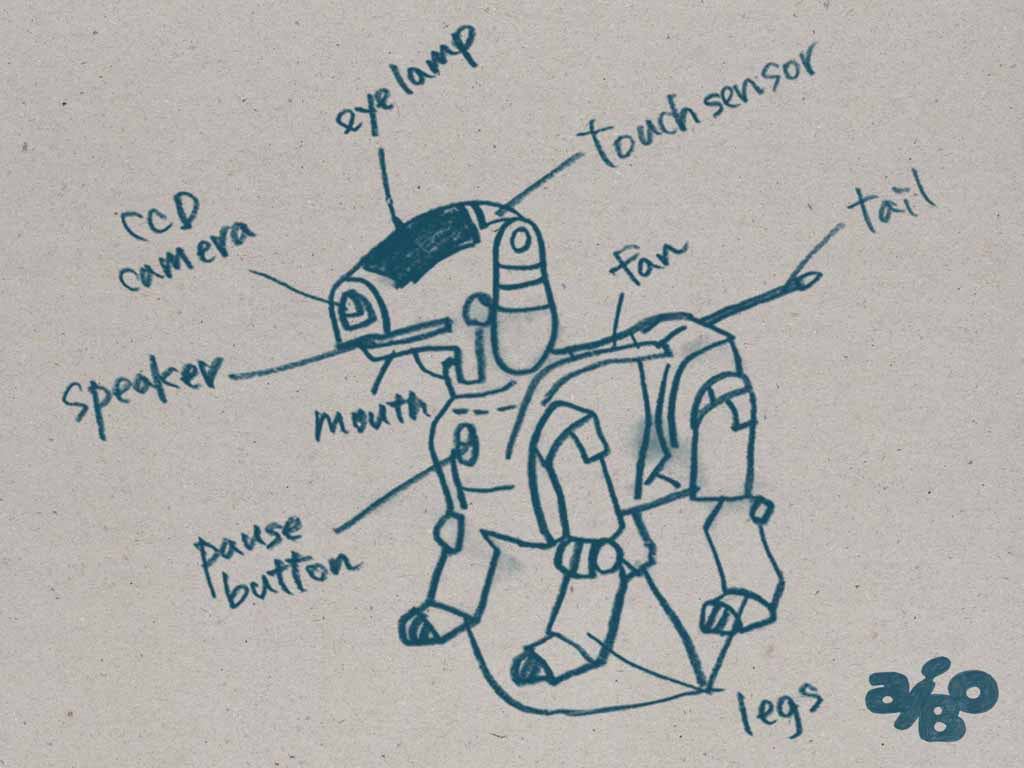 eye lamp
touch sensor
CCD
camera
tail
fan
speaker
mouth
pause
button
legs
aiBo